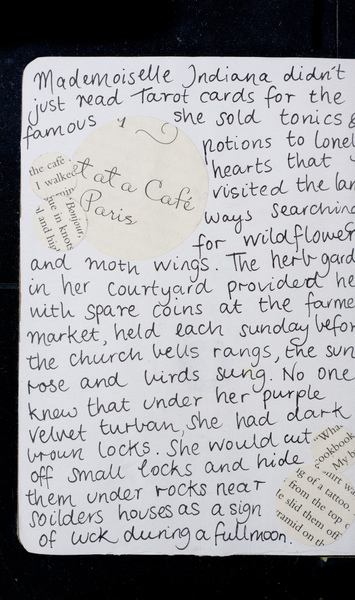 Mademoiselle Indiana didn't
just read Tarot cards for the
famous she sold tonics &
potions to lonel
hearts that
visited the lan
ways searching
for wildflower
and moth wings. The herb gard
in her courtyard provided he
with spare coins at the farme
market, held each sunday befor
the church bells rangs, the sun
rose and birds sung. No one
knew that under her purple
velvet turban, she had dark
brown locks. She would cut
off small locks and hide
them under rocks near
soilders houses as a sign
of luck during a full moon.
the café
I walked
Bonjour,
ue in knots
d and hi
at a Café
Paris
"Wha
ookbook
My b
ig of a tattoo
from the top o
e slid them off
ramid on th